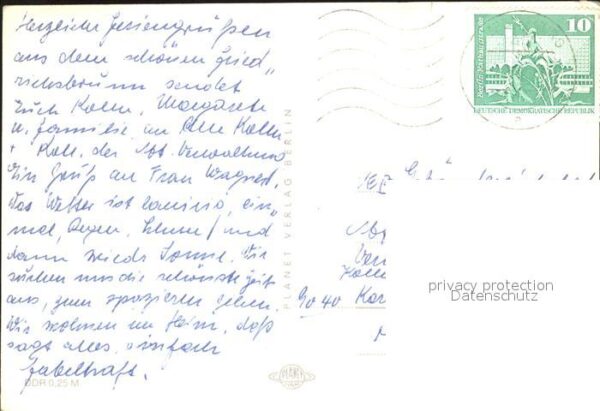 Herzliche Feriengrüßen
aus dem schönen Fried"
richsbrunn sendet
Euch Kolln. Margarete
u. Familie, an alle Kolln
+ Koll. der Abt. Verwaltung
Ein Gruß an Frau Wagner,
Das Wetter ist launig, ein"
mal, Regen, Sturm/und
dann wieder Sonne. Wir
suchen uns die schönste Zeit
aus, zum spazieren gehen.
Wir wohnen im Heim, daß
sagt alles, einfach
fabelhaft.
DDR 0,25 M
PLANET VERLAG BERLIN
PLANET
10
Berlin, Rathausstraße
DEUTSCHE DEMOKRATISCHE REPUBLIK
9040 Kar
privacy protection
Datenschutz